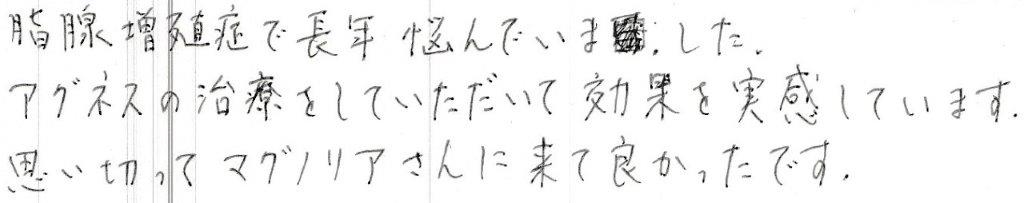 脂腺増殖症で長年悩んでいました.
アグネスの治療をしていただいて効果を実感しています.
思い切ってマグノリアさんに来て良かったです.